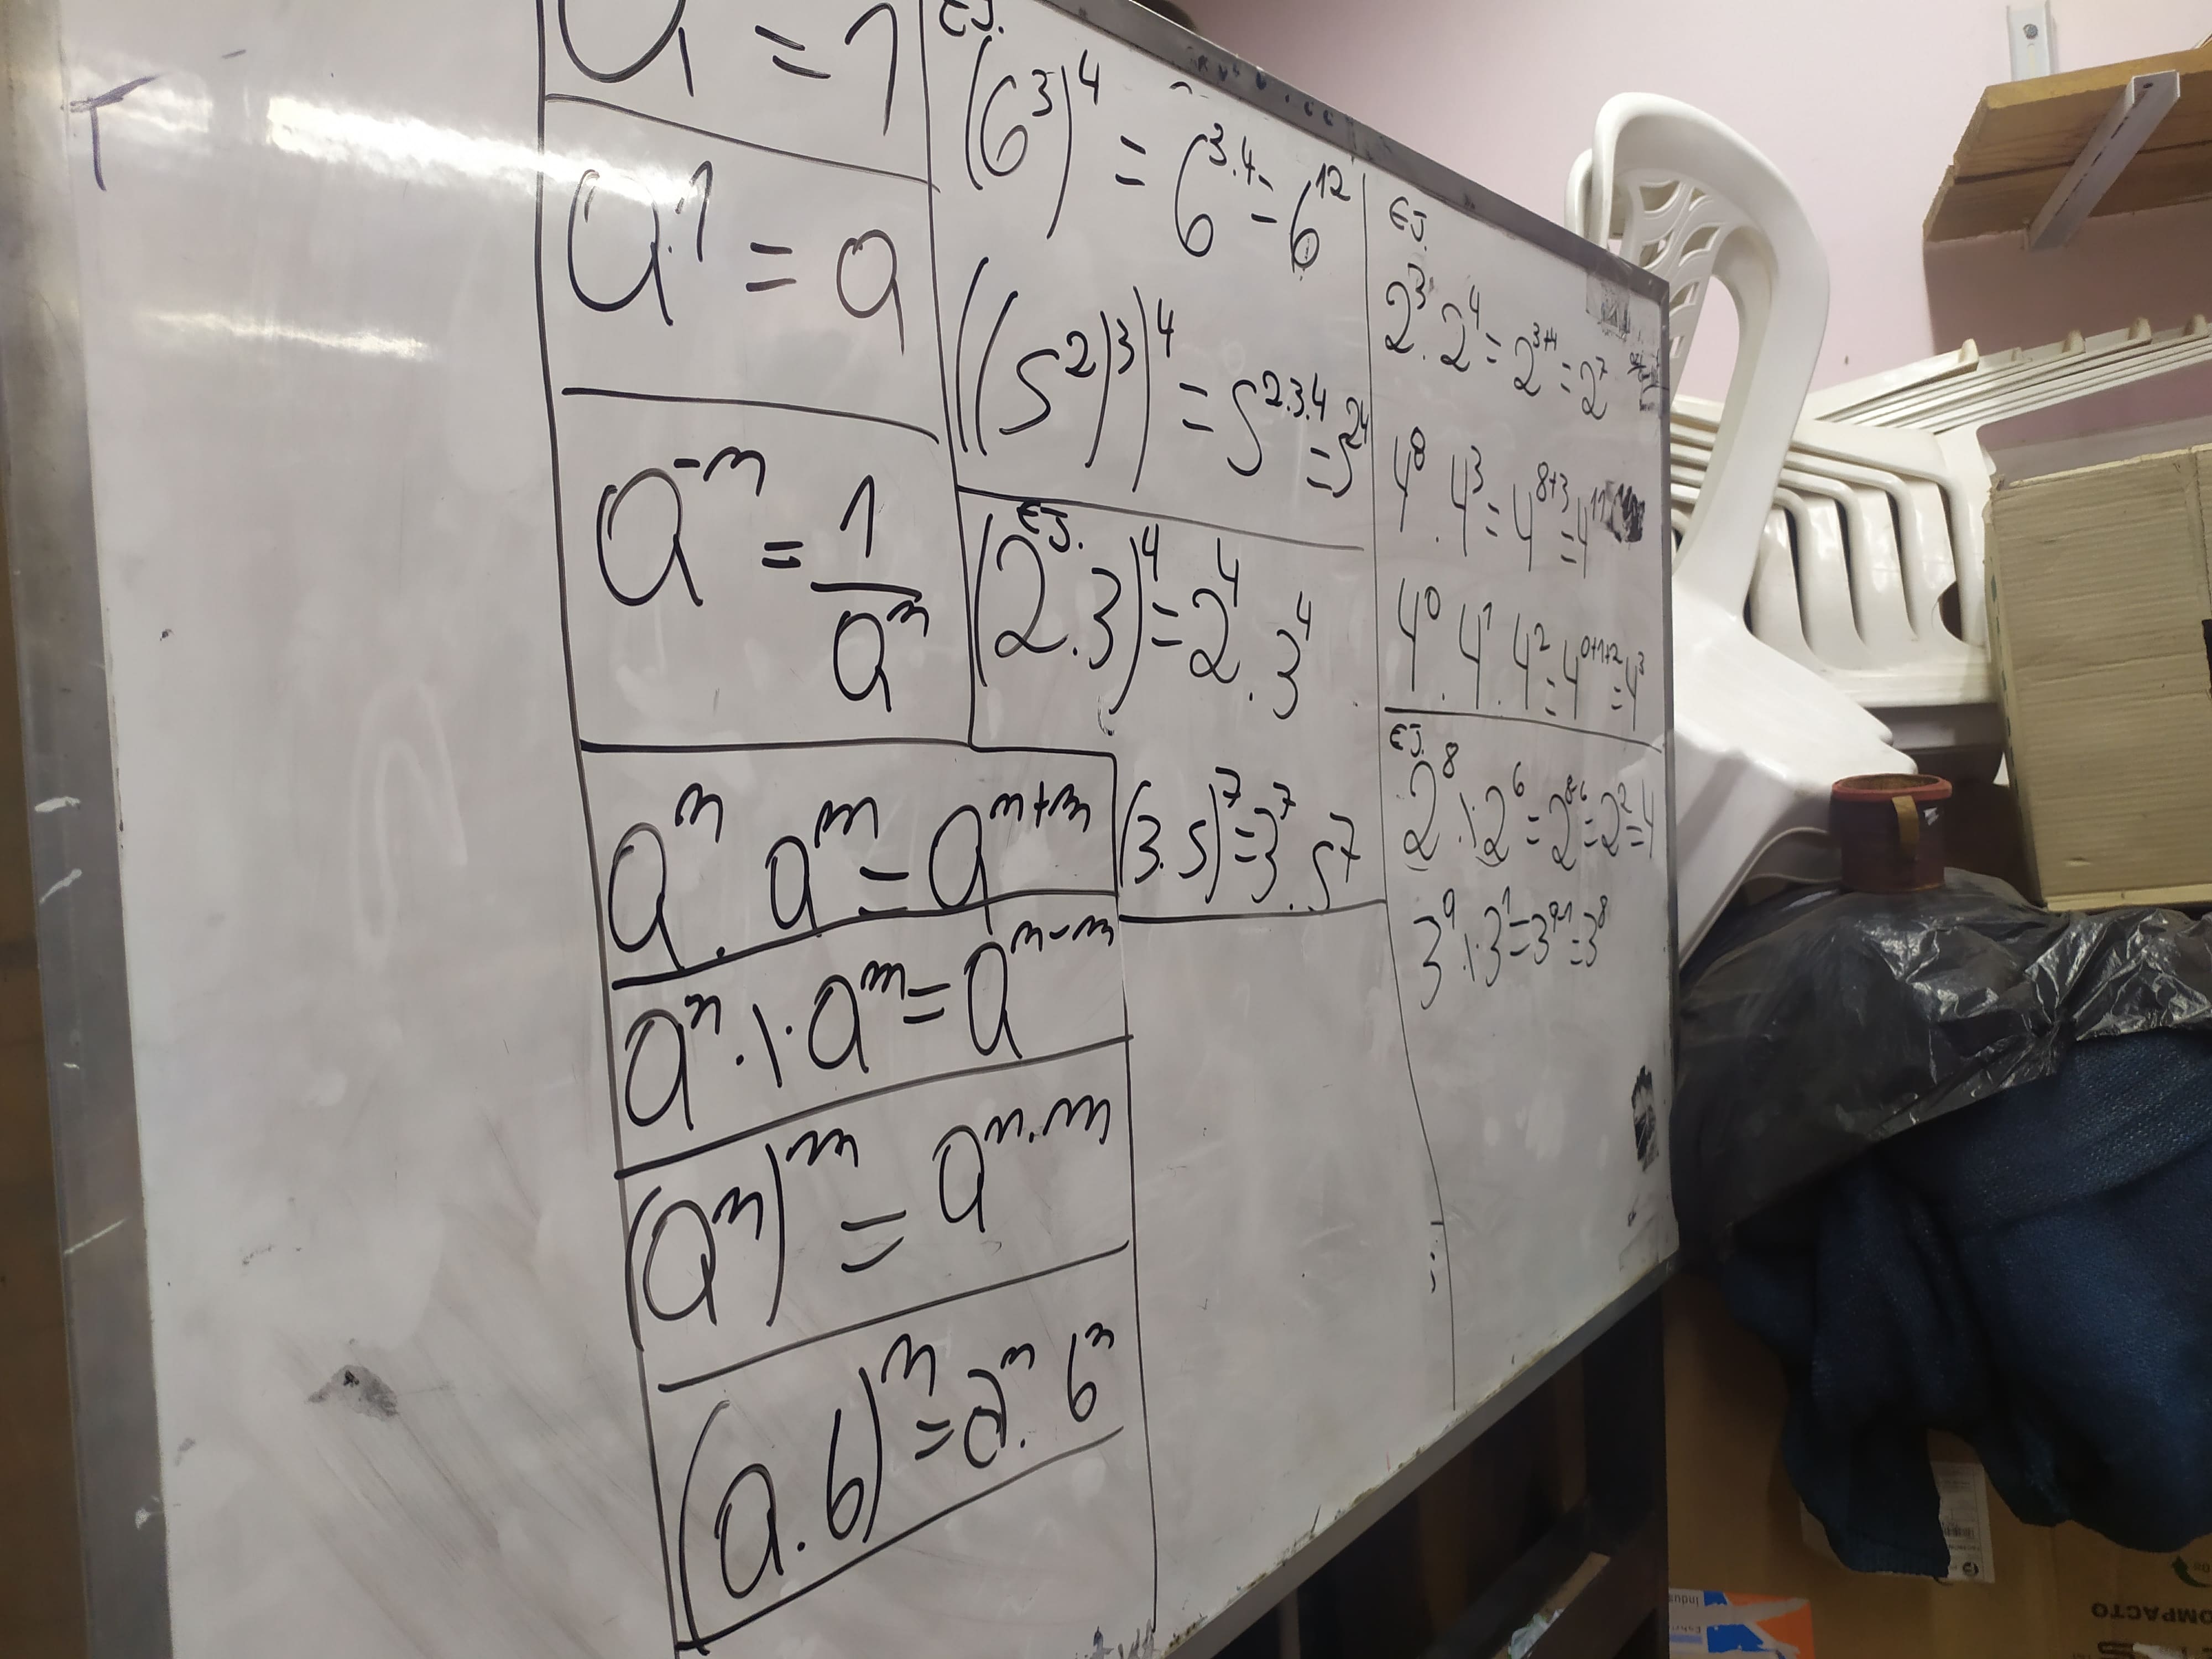 a = 1
a¹ = a
a⁻ⁿ = 1/aⁿ
aⁿ · aᵐ = aⁿ⁺ᵐ
aⁿ ·|· aᵐ = aⁿ⁻ᵐ
(aⁿ)ᵐ = aⁿ·ᵐ
(a.b)ⁿ = aⁿ. bⁿ
EJ.
(6³)⁴ = 6³·⁴ = 6¹²
((5²)³)⁴ = 5²·³·⁴ = 5²⁴
EJ.
(2.3)⁴ = 2⁴ . 3⁴
(3.5)⁷ = 3⁷ . 5⁷
EJ.
2³ . 2⁴ = 2³⁺⁴ = 2⁷
4⁸ . 4³ = 4⁸⁺³ = 4¹¹
4⁰ . 4¹ . 4² = 4⁰⁺¹⁺² = 4³
EJ.
2⁸ ·|· 2⁶ = 2⁸⁻⁶ = 2² = 4
3⁹ ·|· 3¹ = 3⁹⁻¹ = 3⁸
OMPACTO